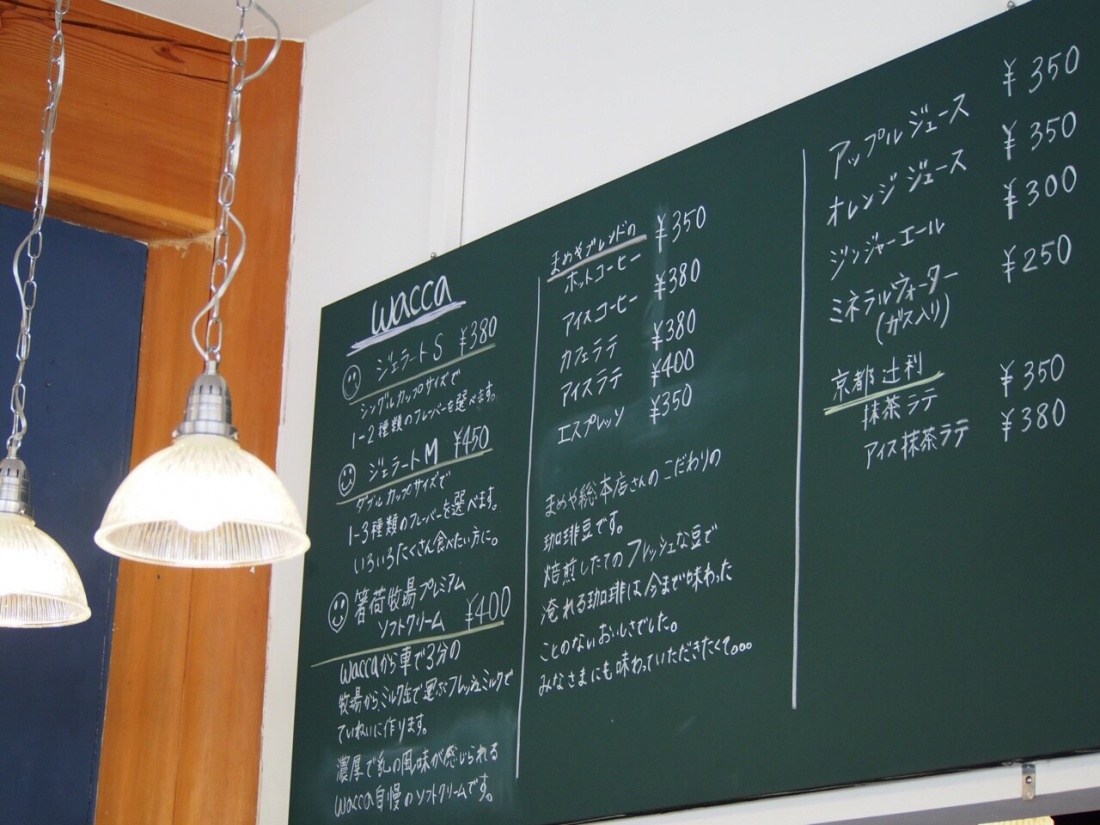 wacca
ジェラートS ¥380
シングルカップサイズで
1-2種類のフレーバーを選べます。
ジェラートM ¥450
ダブルカップサイズで
1-3種類のフレーバーを選べます。
いろいろたくさん食べたい方に。
箸荷牧場プレミアム
ソフトクリーム ¥400
waccaから車で3分の
牧場から、ミルク缶で運ぶフレッシュミルクで
ていねいに作ります。
濃厚で乳の風味が感じられる
wacca自慢のソフトクリームです。
まめやブレンドの
ホットコーヒー ¥350
アイスコーヒー ¥380
カフェラテ ¥380
アイスラテ ¥400
エスプレッソ ¥350
まめや総本店さんのこだわりの
珈琲豆です。
焙煎したてのフレッシュな豆で
淹れる珈琲は今まで味わった
ことのないおいしさでした。
みなさまにも味わっていただきたくて。。。
アップルジュース ¥350
オレンジジュース ¥350
ジンジャーエール ¥300
ミネラルウォーター ¥250
(ガス入り)
京都辻利
抹茶ラテ ¥350
アイス抹茶ラテ ¥380